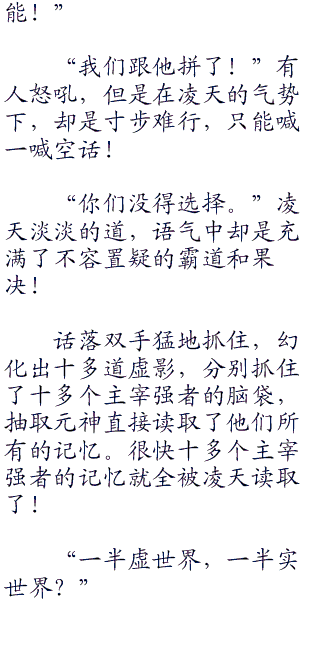 能！”
“我们跟他拼了！”有
人怒吼，但是在凌天的气势
下，却是寸步难行，只能喊
一喊空话！
“你们没得选择。”凌
天淡淡的道，语气中却是充
满了不容置疑的霸道和果
决！
话落双手猛地抓住，幻
化出十多道虚影，分别抓住
了十多个主宰强者的脑袋，
抽取元神直接读取了他们所
有的记忆。很快十多个主宰
强者的记忆就全被凌天读取
了！
“一半虚世界，一半实
世界？”